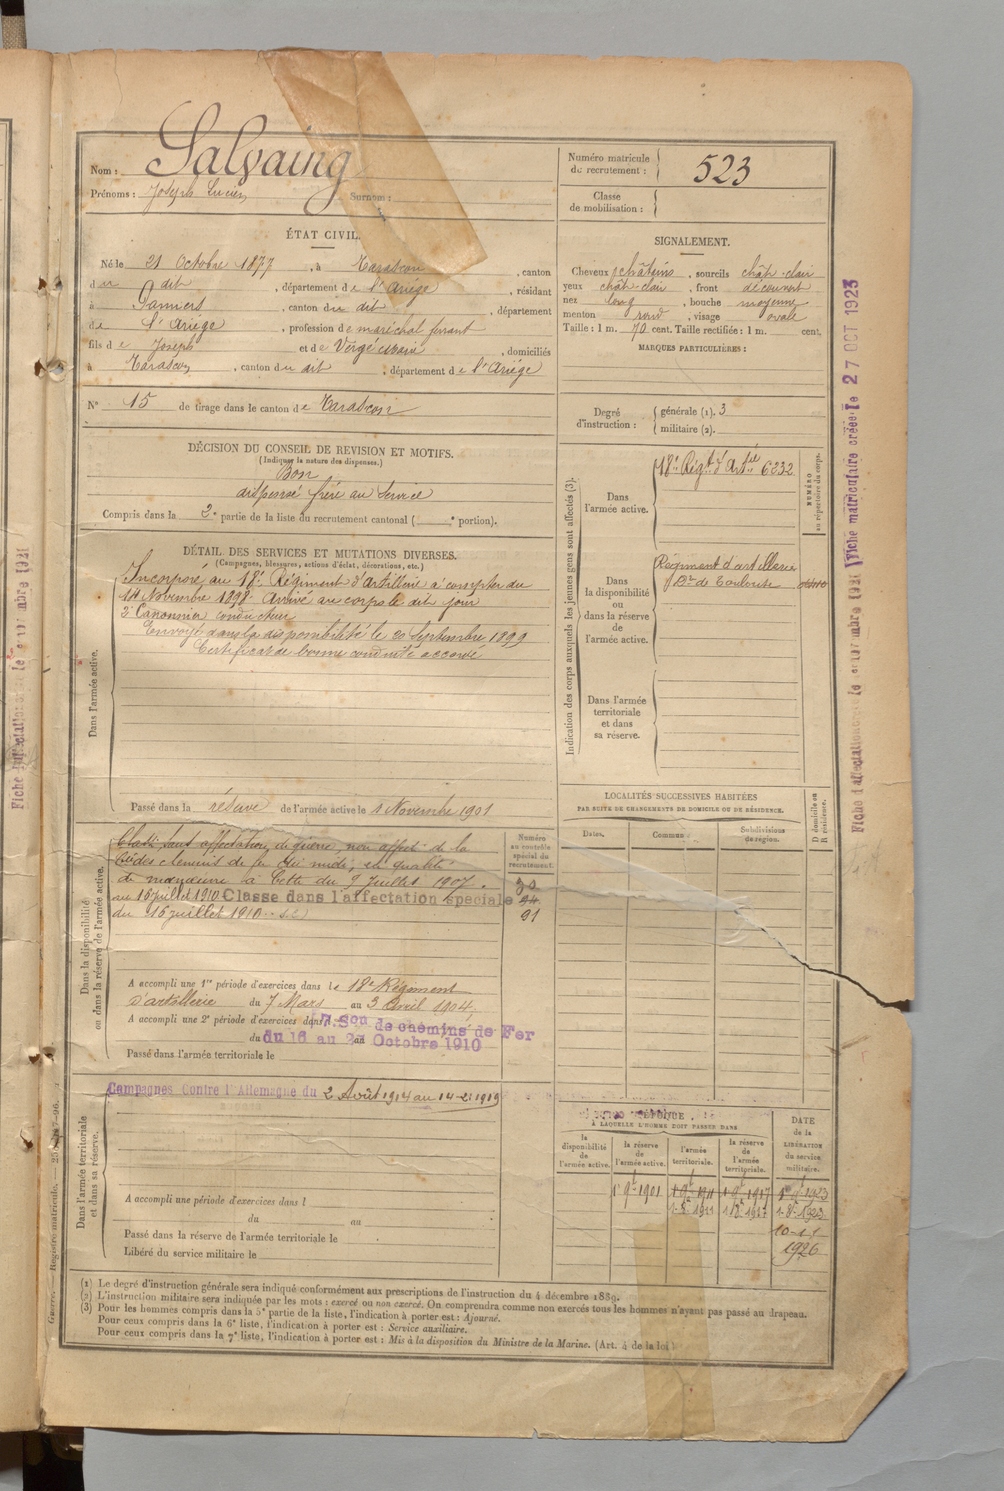 Nom : Salvaing
Prénoms : Joseph Lucien Surnom :
Numéro matricule du recrutement : 523
Classe de mobilisation :
ÉTAT CIVIL.
Né le 21 Octobre 1877, à Tarascon, canton
du dit, département de l'Ariège, résidant
à Pamiers, canton du dit, département
de l'Ariège, profession de maréchal ferrant
fils de Joseph et de Vergé, domiciliés
à Tarascon, canton du dit, département de l'Ariège
N° 15 de tirage dans le canton de Tarascon
SIGNALEMENT.
Cheveux châtains, sourcils chât-clair
yeux chât-clair, front découvert
nez long, bouche moyenne
menton rond, visage ovale
Taille : 1 m. 70 cent. Taille rectifiée : 1 m. cent.
MARQUES PARTICULIÈRES :
Degré d'instruction : générale (1). 3
militaire (2).
DÉCISION DU CONSEIL DE REVISION ET MOTIFS.
(Indiquer la nature des dispenses.)
Bon
dispensé frère au service
Compris dans la 2e partie de la liste du recrutement cantonal ( e portion).
DÉTAIL DES SERVICES ET MUTATIONS DIVERSES.
(Campagnes, blessures, actions d'éclat, décorations, etc.)
Dans l'armée active.
Incorporé au 18e Régiment d'Artillerie à compter du
14 Novembre 1898. Arrivé au corps le dit jour
2e Canonnier conducteur
Envoyé dans la disponibilité le 20 Septembre 1899
Certificat de bonne conduite accordé
Passé dans la réserve de l'armée active le 1 Novembre 1901
Indication des corps auxquels les jeunes gens sont affectés (3).
NUMÉRO au répertoire du corps.
Dans l'armée active.
18e Régt d'Artie 6232
Dans la disponibilité ou dans la réserve de l'armée active.
Régiment d'artillerie
de Toulouse
Dans l'armée territoriale et dans sa réserve.
LOCALITÉS SUCCESSIVES HABITÉES
PAR SUITE DE CHANGEMENTS DE DOMICILE OU DE RÉSIDENCE.
Dates. Communes. Subdivisions de région. D domicile ou R résidence.
Dans la disponibilité ou dans la réserve de l'armée active.
Numéro au contrôle spécial du recrutement.
Classé sans affectation de guerre, non affecté de la
Cie des chemins de fer du midi, en qualité
de manœuvre à Cette du 9 Juillet 1907.
au 16 juillet 1910 Classe dans l'affectation spéciale
du 16 juillet 1910
30
94
91
A accompli une 1re période d'exercices dans le 18e Régiment
d'artillerie du 7 Mars au 3 Avril 1904
A accompli une 2e période d'exercices dans 7. Son de chemins de Fer
du 16 au Octobre 1910
Passé dans l'armée territoriale le
Dans l'armée territoriale et dans sa réserve.
Campagnes Contre l'Allemagne du 2 Août 1914 au 14-2-1919
A accompli une période d'exercices dans l
du au
Passé dans la réserve de l'armée territoriale le
Libéré du service militaire le
ÉPOQUE
À LAQUELLE L'HOMME DOIT PASSER DANS
la disponibilité de l'armée active. la réserve de l'armée active. l'armée territoriale. la réserve de l'armée territoriale. DATE de la LIBÉRATION du service militaire.
1 9e 1901 1 9e 1911 1 9e 1917 1923
1911 1917 1923
10-11
1926
(1) Le degré d'instruction générale sera indiqué conformément aux prescriptions de l'instruction du 4 décembre 1889.
(2) L'instruction militaire sera indiquée par les mots : exercé ou non exercé. On comprendra comme non exercés tous les hommes n'ayant pas passé au drapeau.
(3) Pour les hommes compris dans la 5e partie de la liste, l'indication à porter est : Ajourné.
Pour ceux compris dans la 6e liste, l'indication à porter est : Service auxiliaire.
Pour ceux compris dans la 7e liste, l'indication à porter est : Mis à la disposition du Ministre de la Marine. (Art. 4 de la loi)
Guerre. — Registre matricule.
Fiche matriculaire créée le 27 OCT 1923
Fiche d'affectation